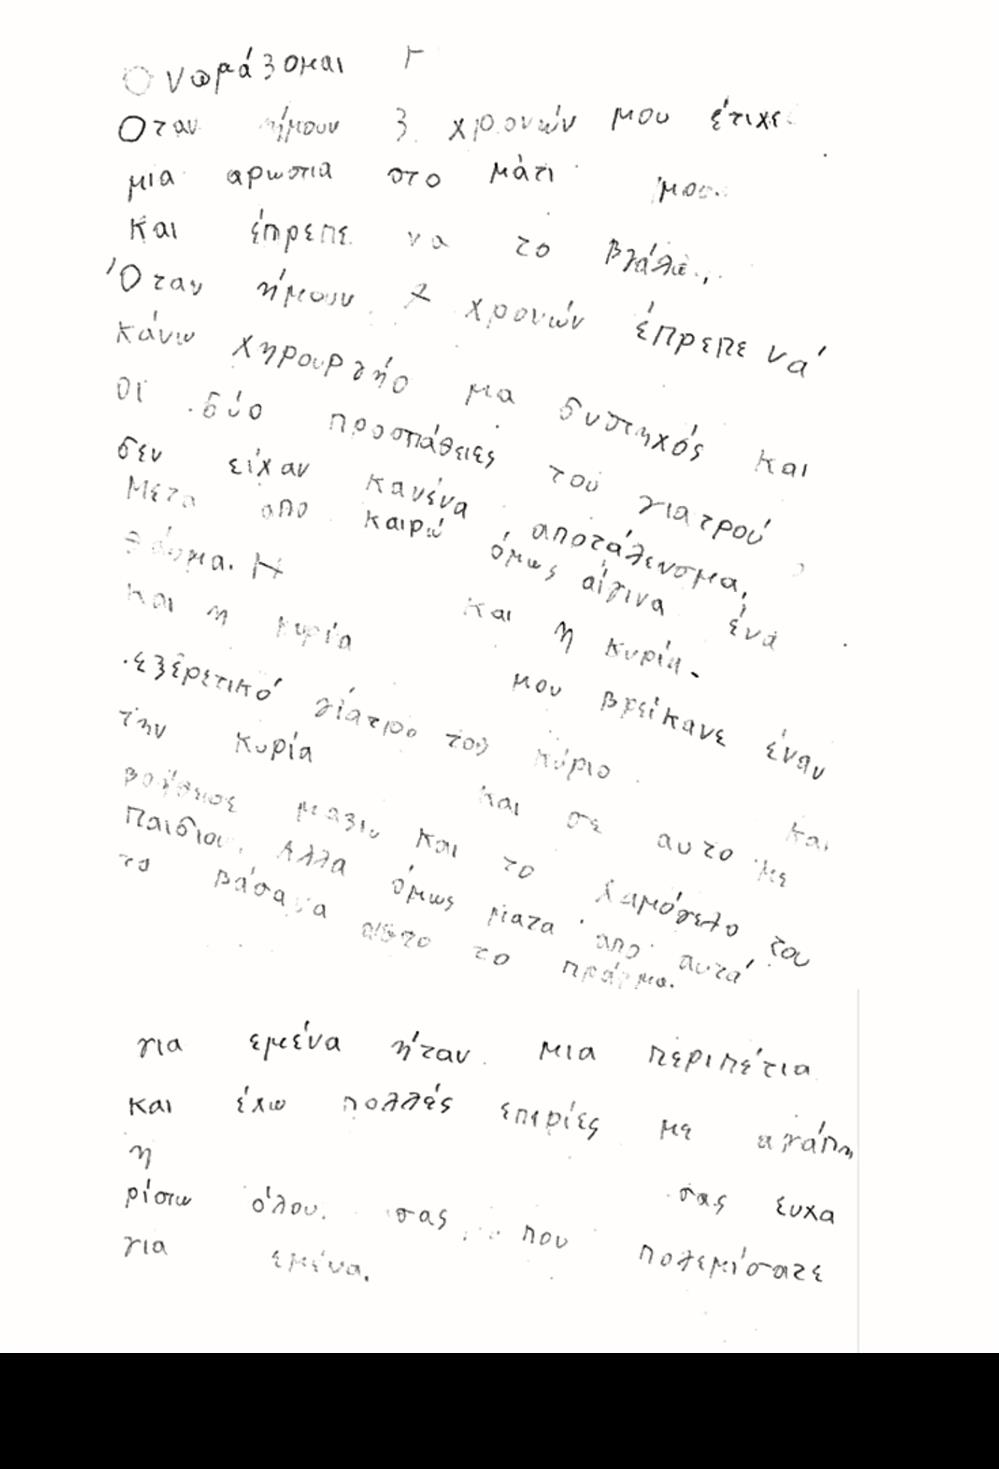 Ονομάζομαι Γ
Οταν ήμουν 3 χρονών μου έτιχε
μια αρωστια στο μάτι μου
και έπρεπε να το βγάλω,
Όταν ήμουν 7 χρονών έπρεπε νά
κάνω χηρουργήο μα δυστηχός και
οι δύο προσπάθειες του γιατρού
δεν είχαν κανένα αποτάλενσμα,
Μετα απο καιρώ όμως αίγινα ένα
θάυμα. Η και η κυρία.
και η κυρία μου βρείκανε έναν
εξερετικό γίατρο τον κύριο και
την κυρία και σε αυτο με
βοήθεισε μαζιυ και το χαμόγελο του
Παιδιου. Αλλα όμως ματα απο αυτα
το βάσανα αυτο το πράγμα.
για εμένα ήταν μια περιπέτια
και έχω πολλές επιρίες με αγάπη
η σας ευχα
ρίστω όλου σας που πολεμίσατε
για εμένα.